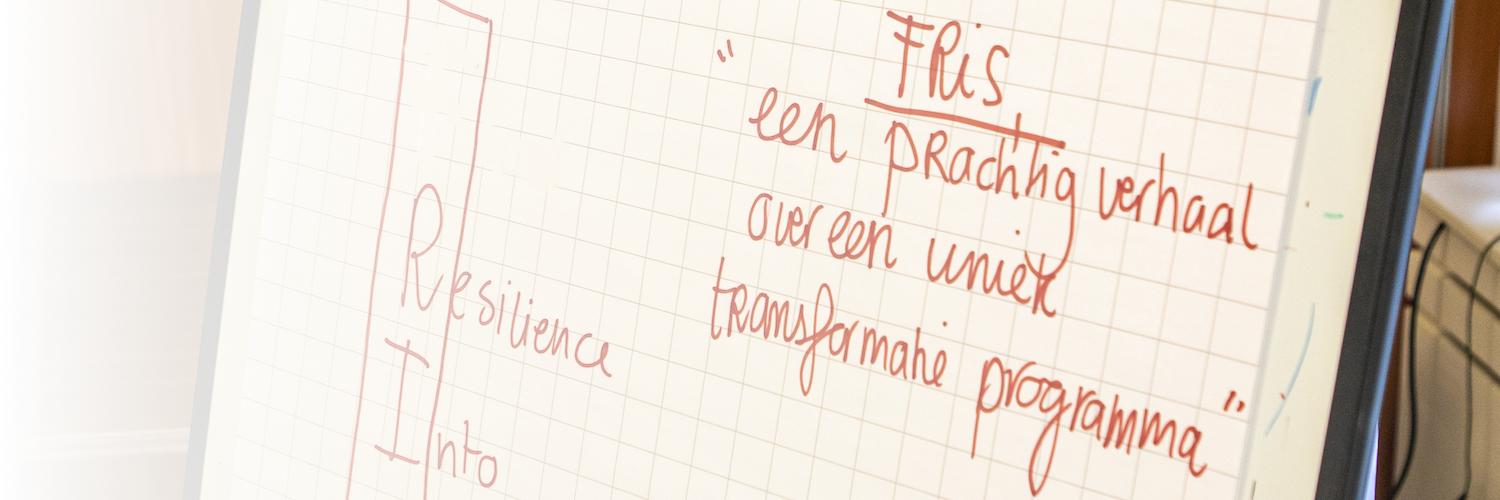 FRiS
"een prachtig verhaal
over een uniek
transformatie programma"
Resilience
Into